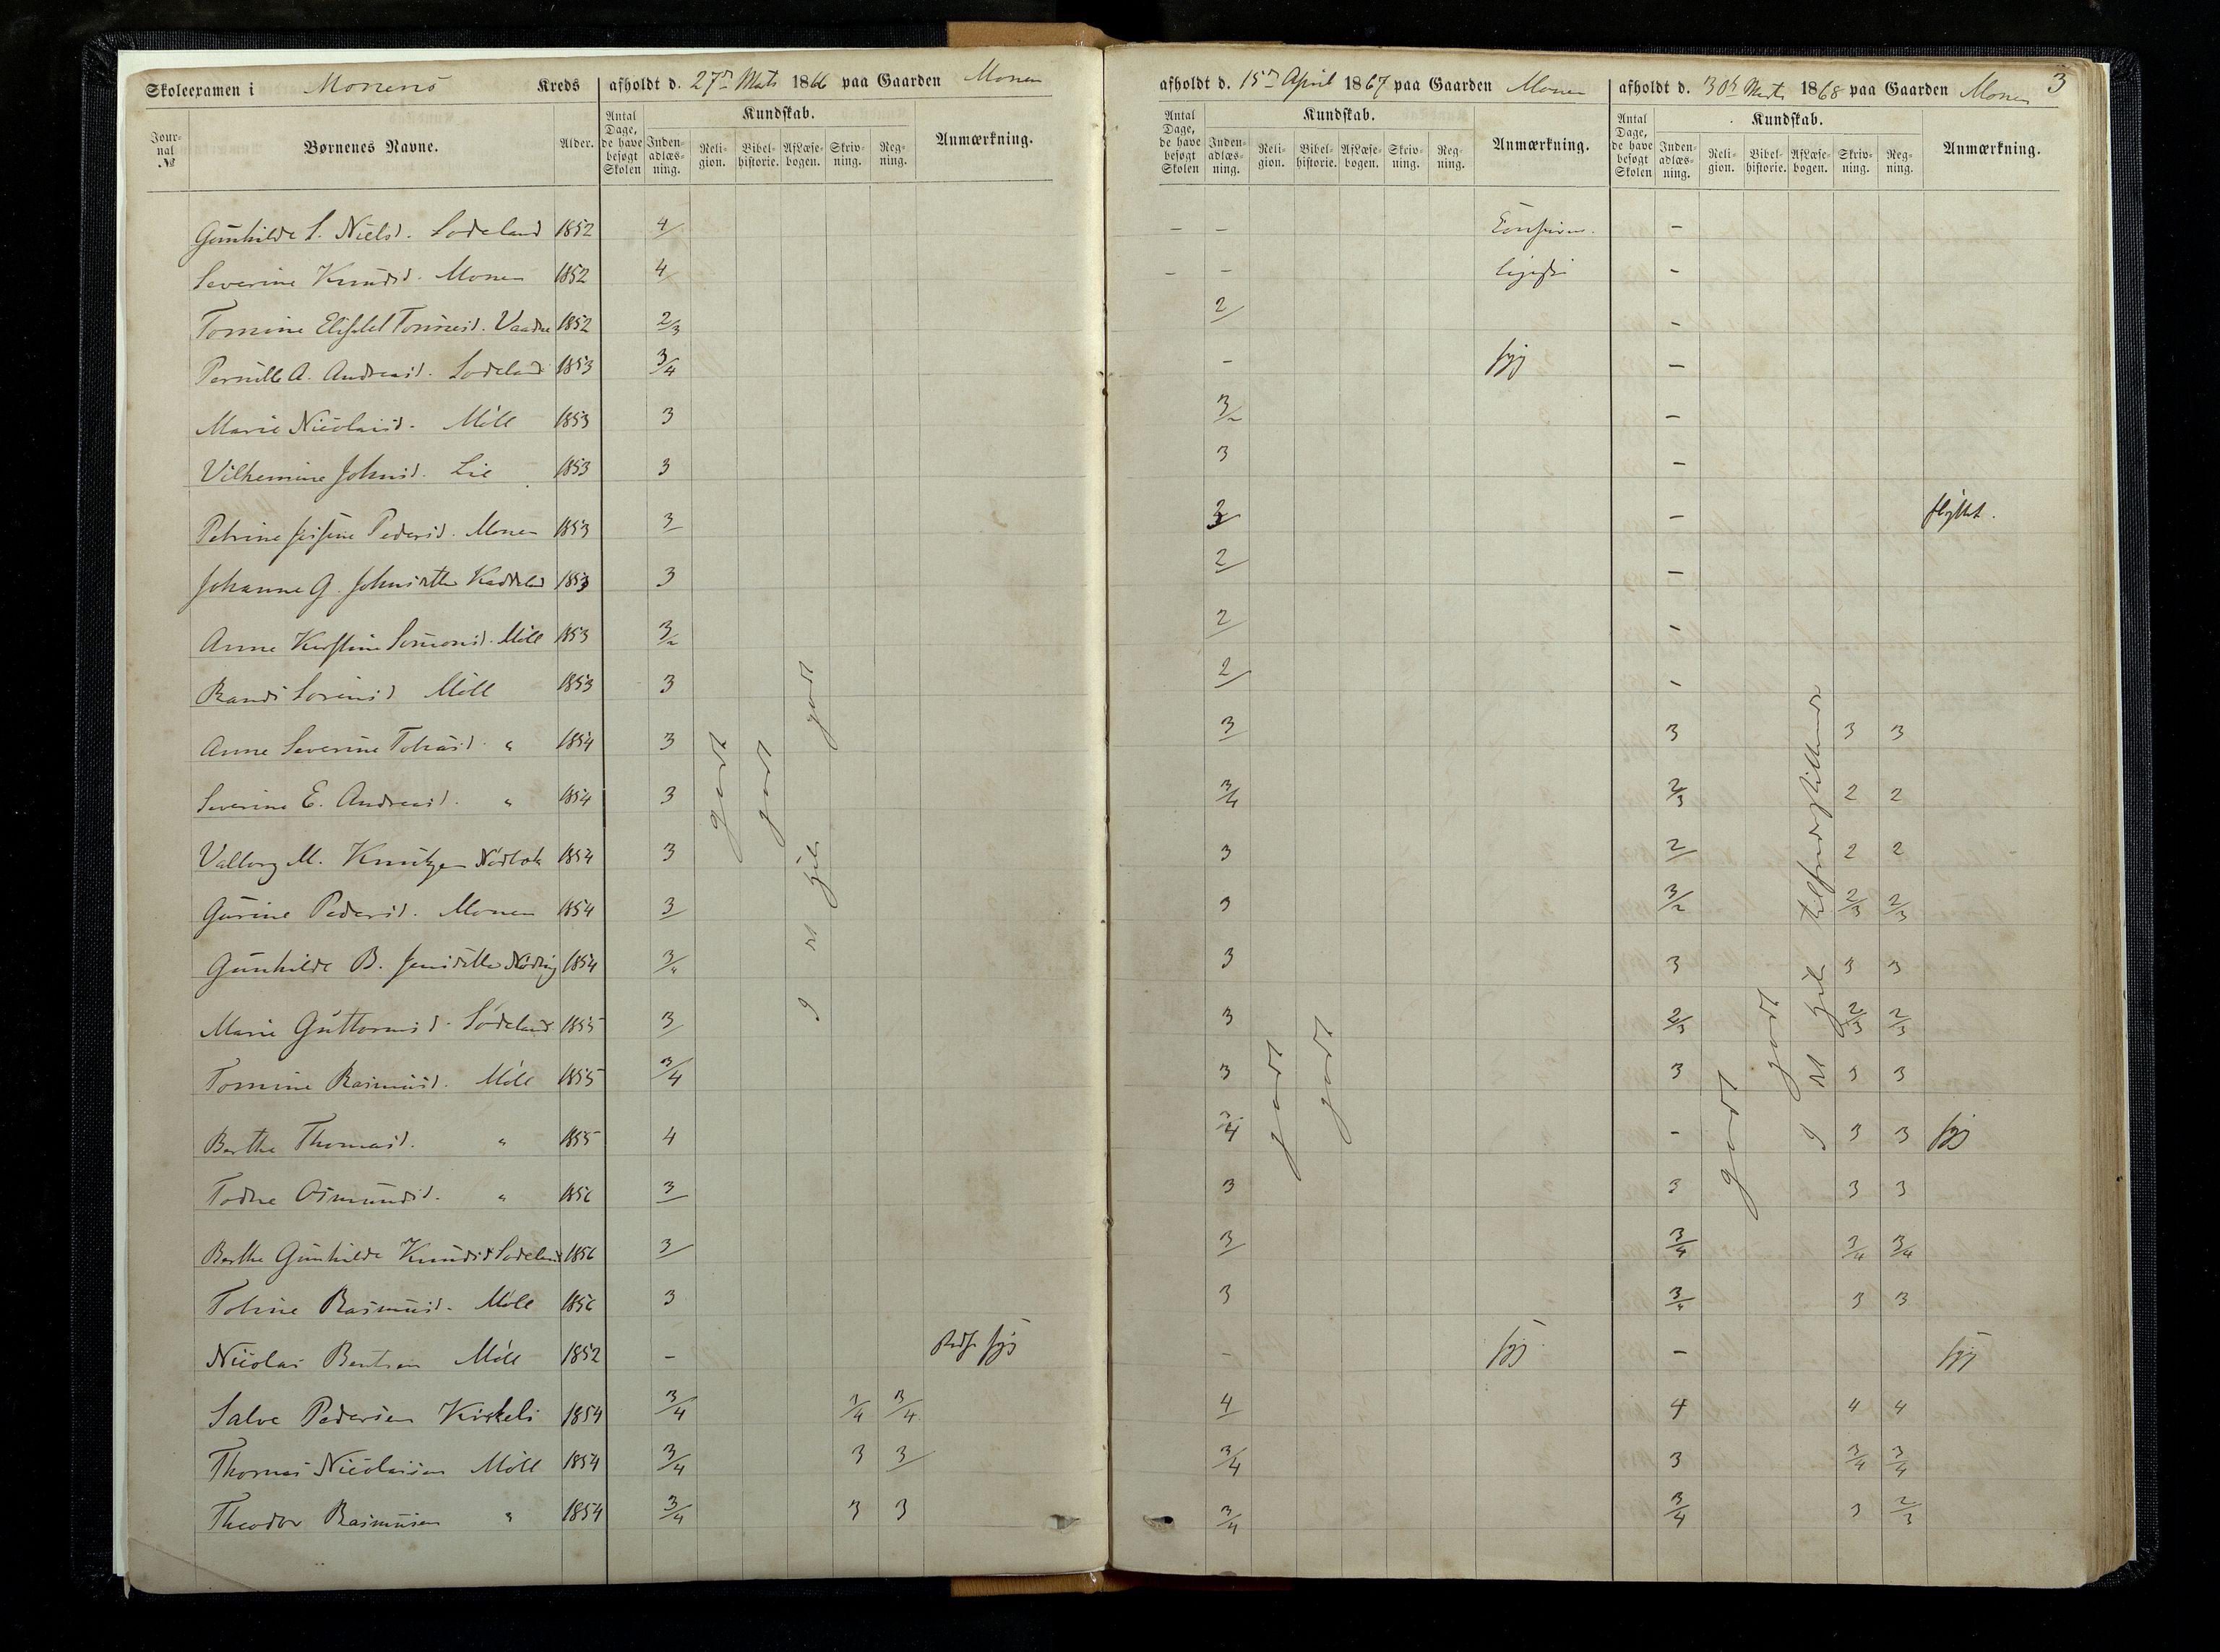 Skoleexamen i Monens Kreds afholdt d. 27de Marts 1866 paa Gaarden Monen afholdt d. 15de April 1867 paa Gaarden Monen afholdt d. 30te Marts 1868 paa Gaarden Monen 3
Jour-nal № Børnenes Navne. Alder. Antal Dage, de have besøgt Skolen Kundskab. Inden-adlæs-ning. Reli-gion. Bibel-historie. AfLæse-bogen. Skriv-ning. Reg-ning. Anmærkning. Antal Dage, de have besøgt Skolen Kundskab. Inden-adlæs-ning. Reli-gion. Bibel-historie. AfLæse-bogen. Skriv-ning. Reg-ning. Anmærkning. Antal Dage, de have besøgt Skolen Kundskab. Inden-adlæs-ning. Reli-gion. Bibel-historie. AfLæse-bogen. Skriv-ning. Reg-ning. Anmærkning.
Gunhilde S. Nielsd. Lodeland 1852 4 – – –
Severine Knudsd. Monen 1852 4 – – –
Tomine 1852 2/3 2 –
Pernille A. Andreasd. Lodeland 1853 3/4 – syg –
Marie Nicolaisd. Möll 1853 3 3/2 –
Vilhemine Johnsd. Lie 1853 3 3 –
Petrine Pedersd. Monen 1853 3 3 – flyttet.
Johanne G. 1853 3 2 –
Anne Kirstine Simonsd. Möll 1853 3/2 2 –
Randi Sörensd. Möll 1853 3 2 –
Anne Severine Tobiasd. " 1854 3 3 3 3 3
Severine E. Andreasd. " 1854 3 3/4 2/3 2 2
Valborg M. Knutzen 1854 3 3 2 2 2
Gurine Pedersd. Monen 1854 3 3 3/2 2/3 2/3
Gunhilde B. 1854 3/4 3 3 3 3
Marie Guttormsd. Lödeland 1855 3 3 2/3 2/3 2/3
Tomine Rasmusd. Möll 1855 3/4 3 3 3 3
Berthe Thomasd. " 1855 4 3/4 – 3 3 syg
Todne Osmundsd. " 1856 3 3 3 3 3
Berthe Gunhilde Knudsd. Lodeland 1856 3 3 3/4 3/4 3/4
Tobine Rasmusd. Möll 1856 3 3 3/4 3 3
Nicolai Bentsen Möll 1852 – syg – syg – syg
Salve Pedersen Kirkeli 1854 3/4 3/4 3/4 4 4 4 4
Thomas Nicolaisen Möll 1854 3/4 3 3 3/4 3 3/4 3/4
Theodor Rasmusen " 1854 3/4 3 3 3/4 3/4 3 2/3
godt
godt
godt
godt
godt
godt
godt
tilfredsstillende